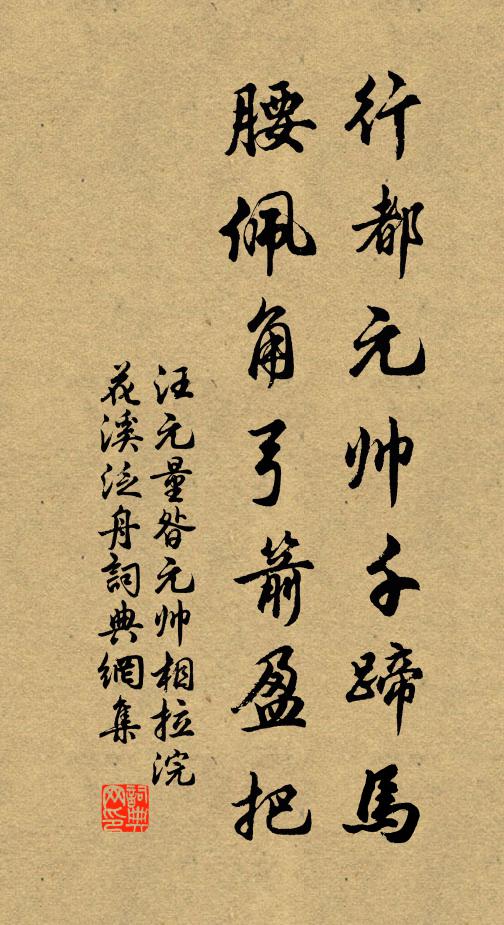 行都元帅千蹄馬
腰佩角弓箭盈把
汪元量昝元帅相拉浣
花溪泛舟詞典網集